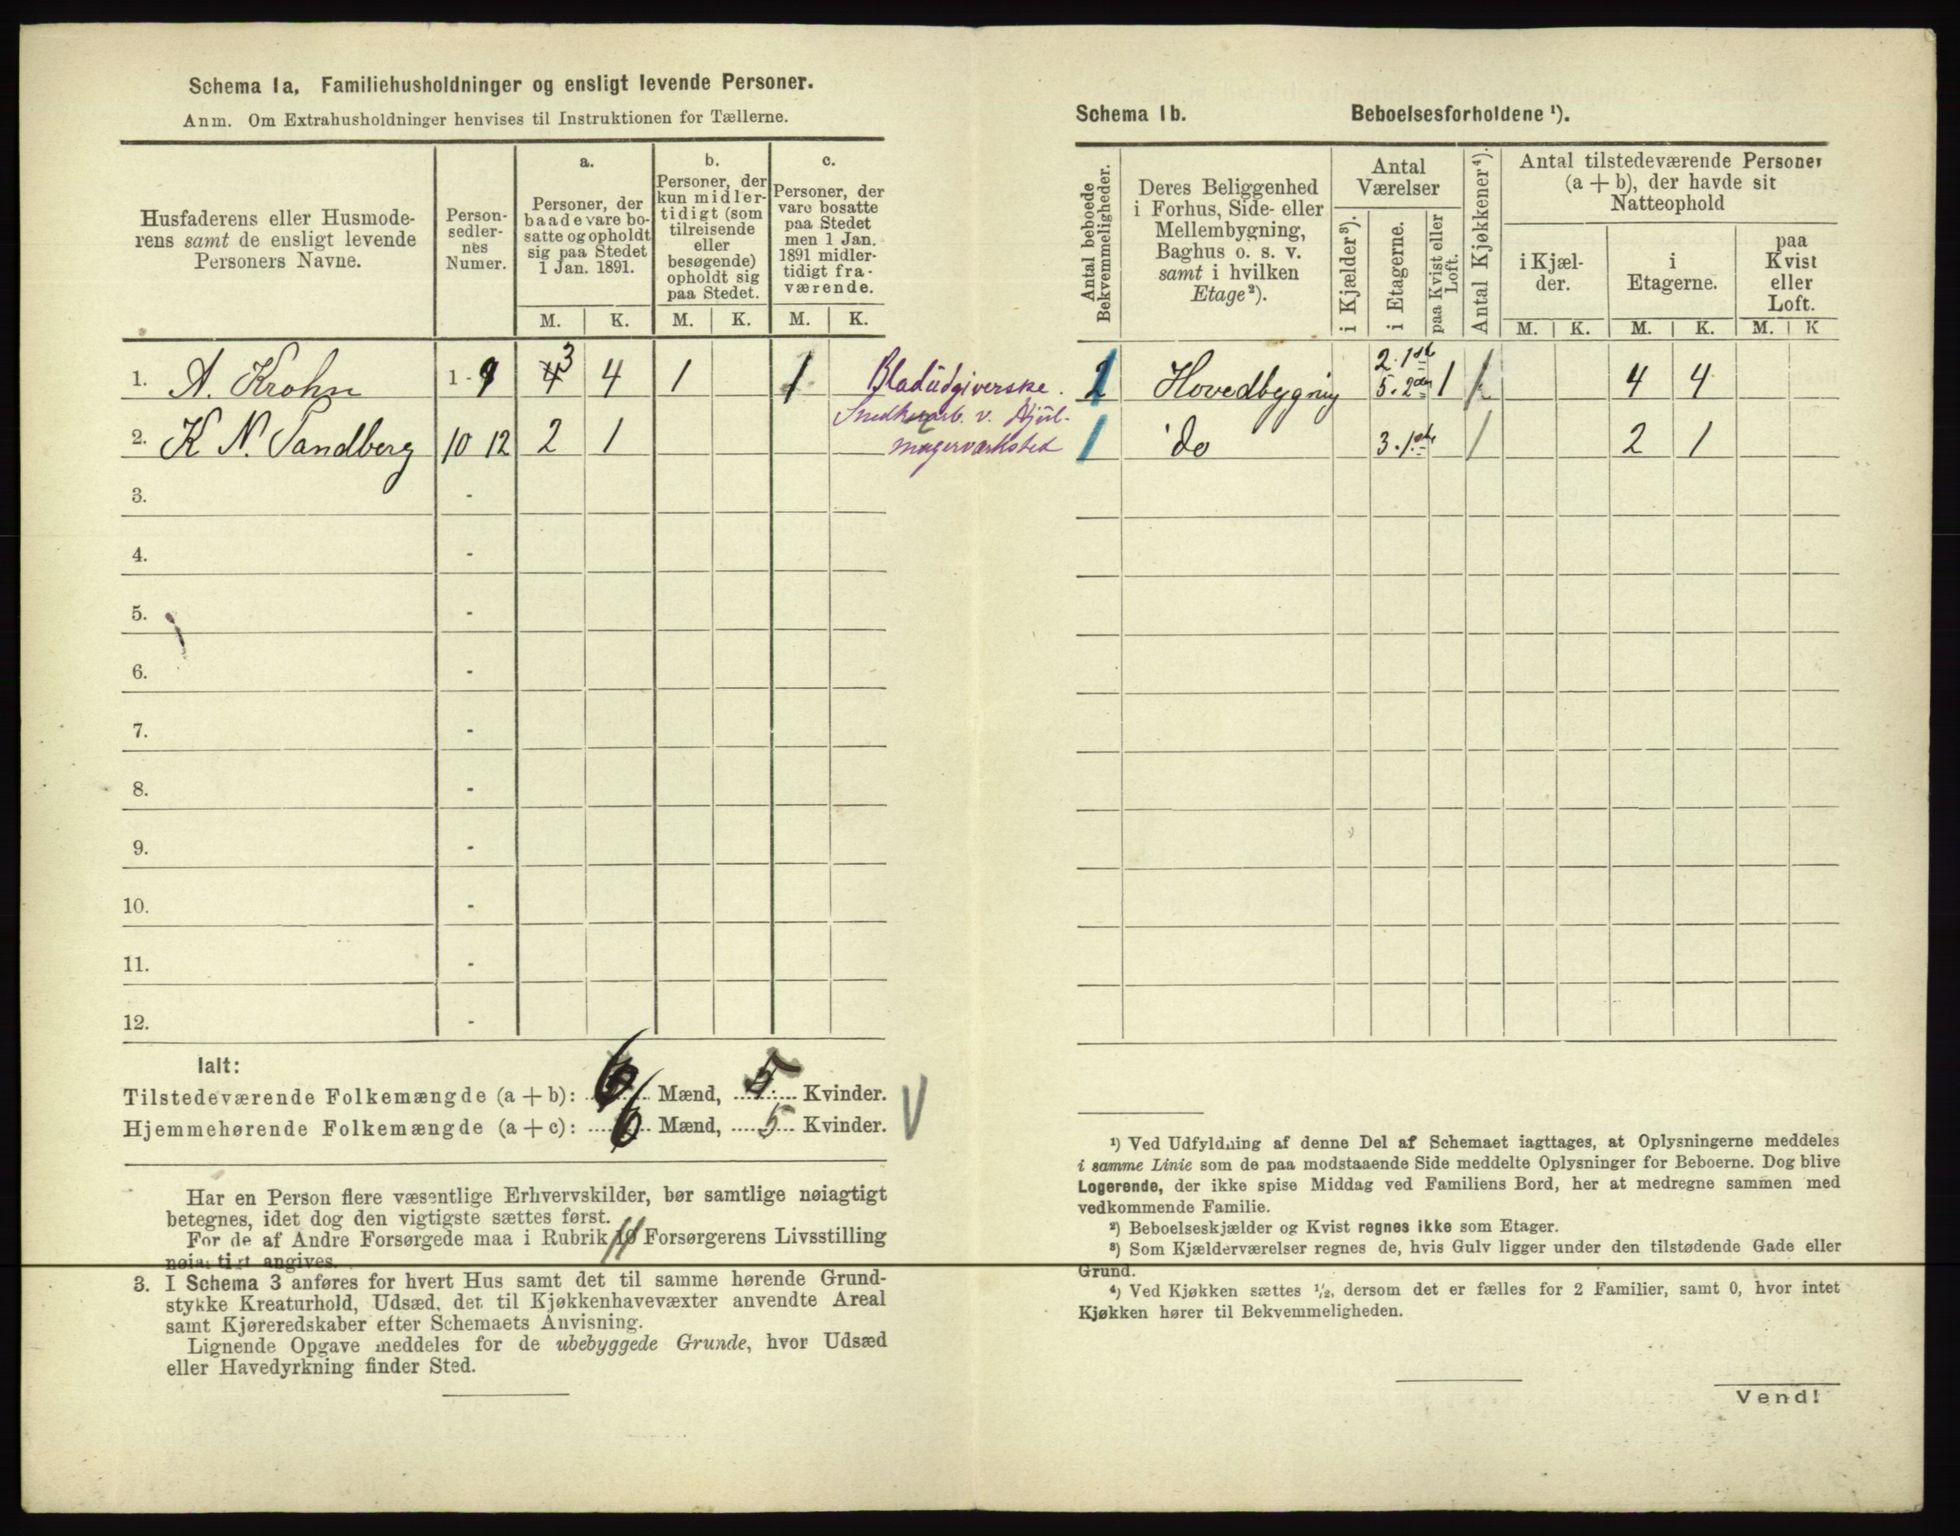 Schema 1a. Familiehusholdninger og ensligt levende Personer.
Anm. Om Extrahusholdninger henvises til Instruktionen for Tællerne.
Husfaderens eller Husmode-
rens samt de ensligt levende
Personers Navne.
Person-
sedler-
nes
Numer.
a.
Personer, der
baade vare bo-
satte og opholdt
sig paa Stedet
1 Jan. 1891.
b.
Personer, der
kun midler-
tidigt (som
tilreisende
eller
besøgende)
opholdt sig
paa Stedet.
c.
Personer, der
vare bosatte
paa Stedet
men 1 Jan.
1891 midler-
tidigt fra-
værende.
M. K. M. K. M. K.
1. A. Krohn 1 - 9 4 3 4 1 1 Bladüdgiverske.
2. K N. Sandberg 10 12 2 1 v. Hjül-
magerværksted
3. -
4. -
5. -
6. -
7. -
8. -
9. -
10. -
11. -
12. -
Ialt:
Tilstedeværende Folkemængde (a + b): 6 Mænd, 5 Kvinder.
Hjemmehørende Folkemængde (a + c): 6 Mænd, 5 Kvinder.
Har en Person flere væsentlige Erhvervskilder, bør samtlige nøiagtigt
betegnes, idet dog den vigtigste sættes først.
For de af Andre Forsørgede maa i Rubrik 10 11 Forsørgerens Livsstilling
nøiagtigt angives.
3. I Schema 3 anføres for hvert Hus samt det til samme hørende Grund-
stykke Kreaturhold, Udsæd, det til Kjøkkenhavevæxter anvendte Areal
samt Kjøreredskaber efter Schemaets Anvisning.
Lignende Opgave meddeles for de ubebyggede Grunde, hvor Udsæd
eller Havedyrkning finder Sted.
Schema 1b. Beboelsesforholdene ¹).
Antal beboede
Bekvemmeligheder.
Deres Beliggenhed
i Forhus, Side- eller
Mellembygning,
Baghus o. s. v.
samt i hvilken
Etage²).
Antal
Værelser
i Kjælder³).
i Etagerne.
paa Kvist eller
Loft.
Antal Kjøkkener⁴).
Antal tilstedeværende Personer
(a + b), der havde sit
Natteophold
i Kjæl-
der.
i
Etagerne.
paa
Kvist
eller
Loft.
M. K. M. K. M. K
Hovedbygnig 2. 1ste 5. 2den 1 1 4 4
1 do 3. 1ste 1 2 1
¹) Ved Udfyldning af denne Del af Schemaet iagttages, at Oplysningerne meddeles
i samme Linie som de paa modstaaende Side meddelte Oplysninger for Beboerne. Dog blive
Logerende, der ikke spise Middag ved Familiens Bord, her at medregne sammen med
vedkommende Familie.
²) Beboelseskjælder og Kvist regnes ikke som Etager.
³) Som Kjælderværelser regnes de, hvis Gulv ligger under den tilstødende Gade eller
Grund.
⁴) Ved Kjøkken sættes ¹/₂, dersom det er fælles for 2 Familier, samt 0, hvor intet
Kjøkken hører til Bekvemmeligheden.
Vend!